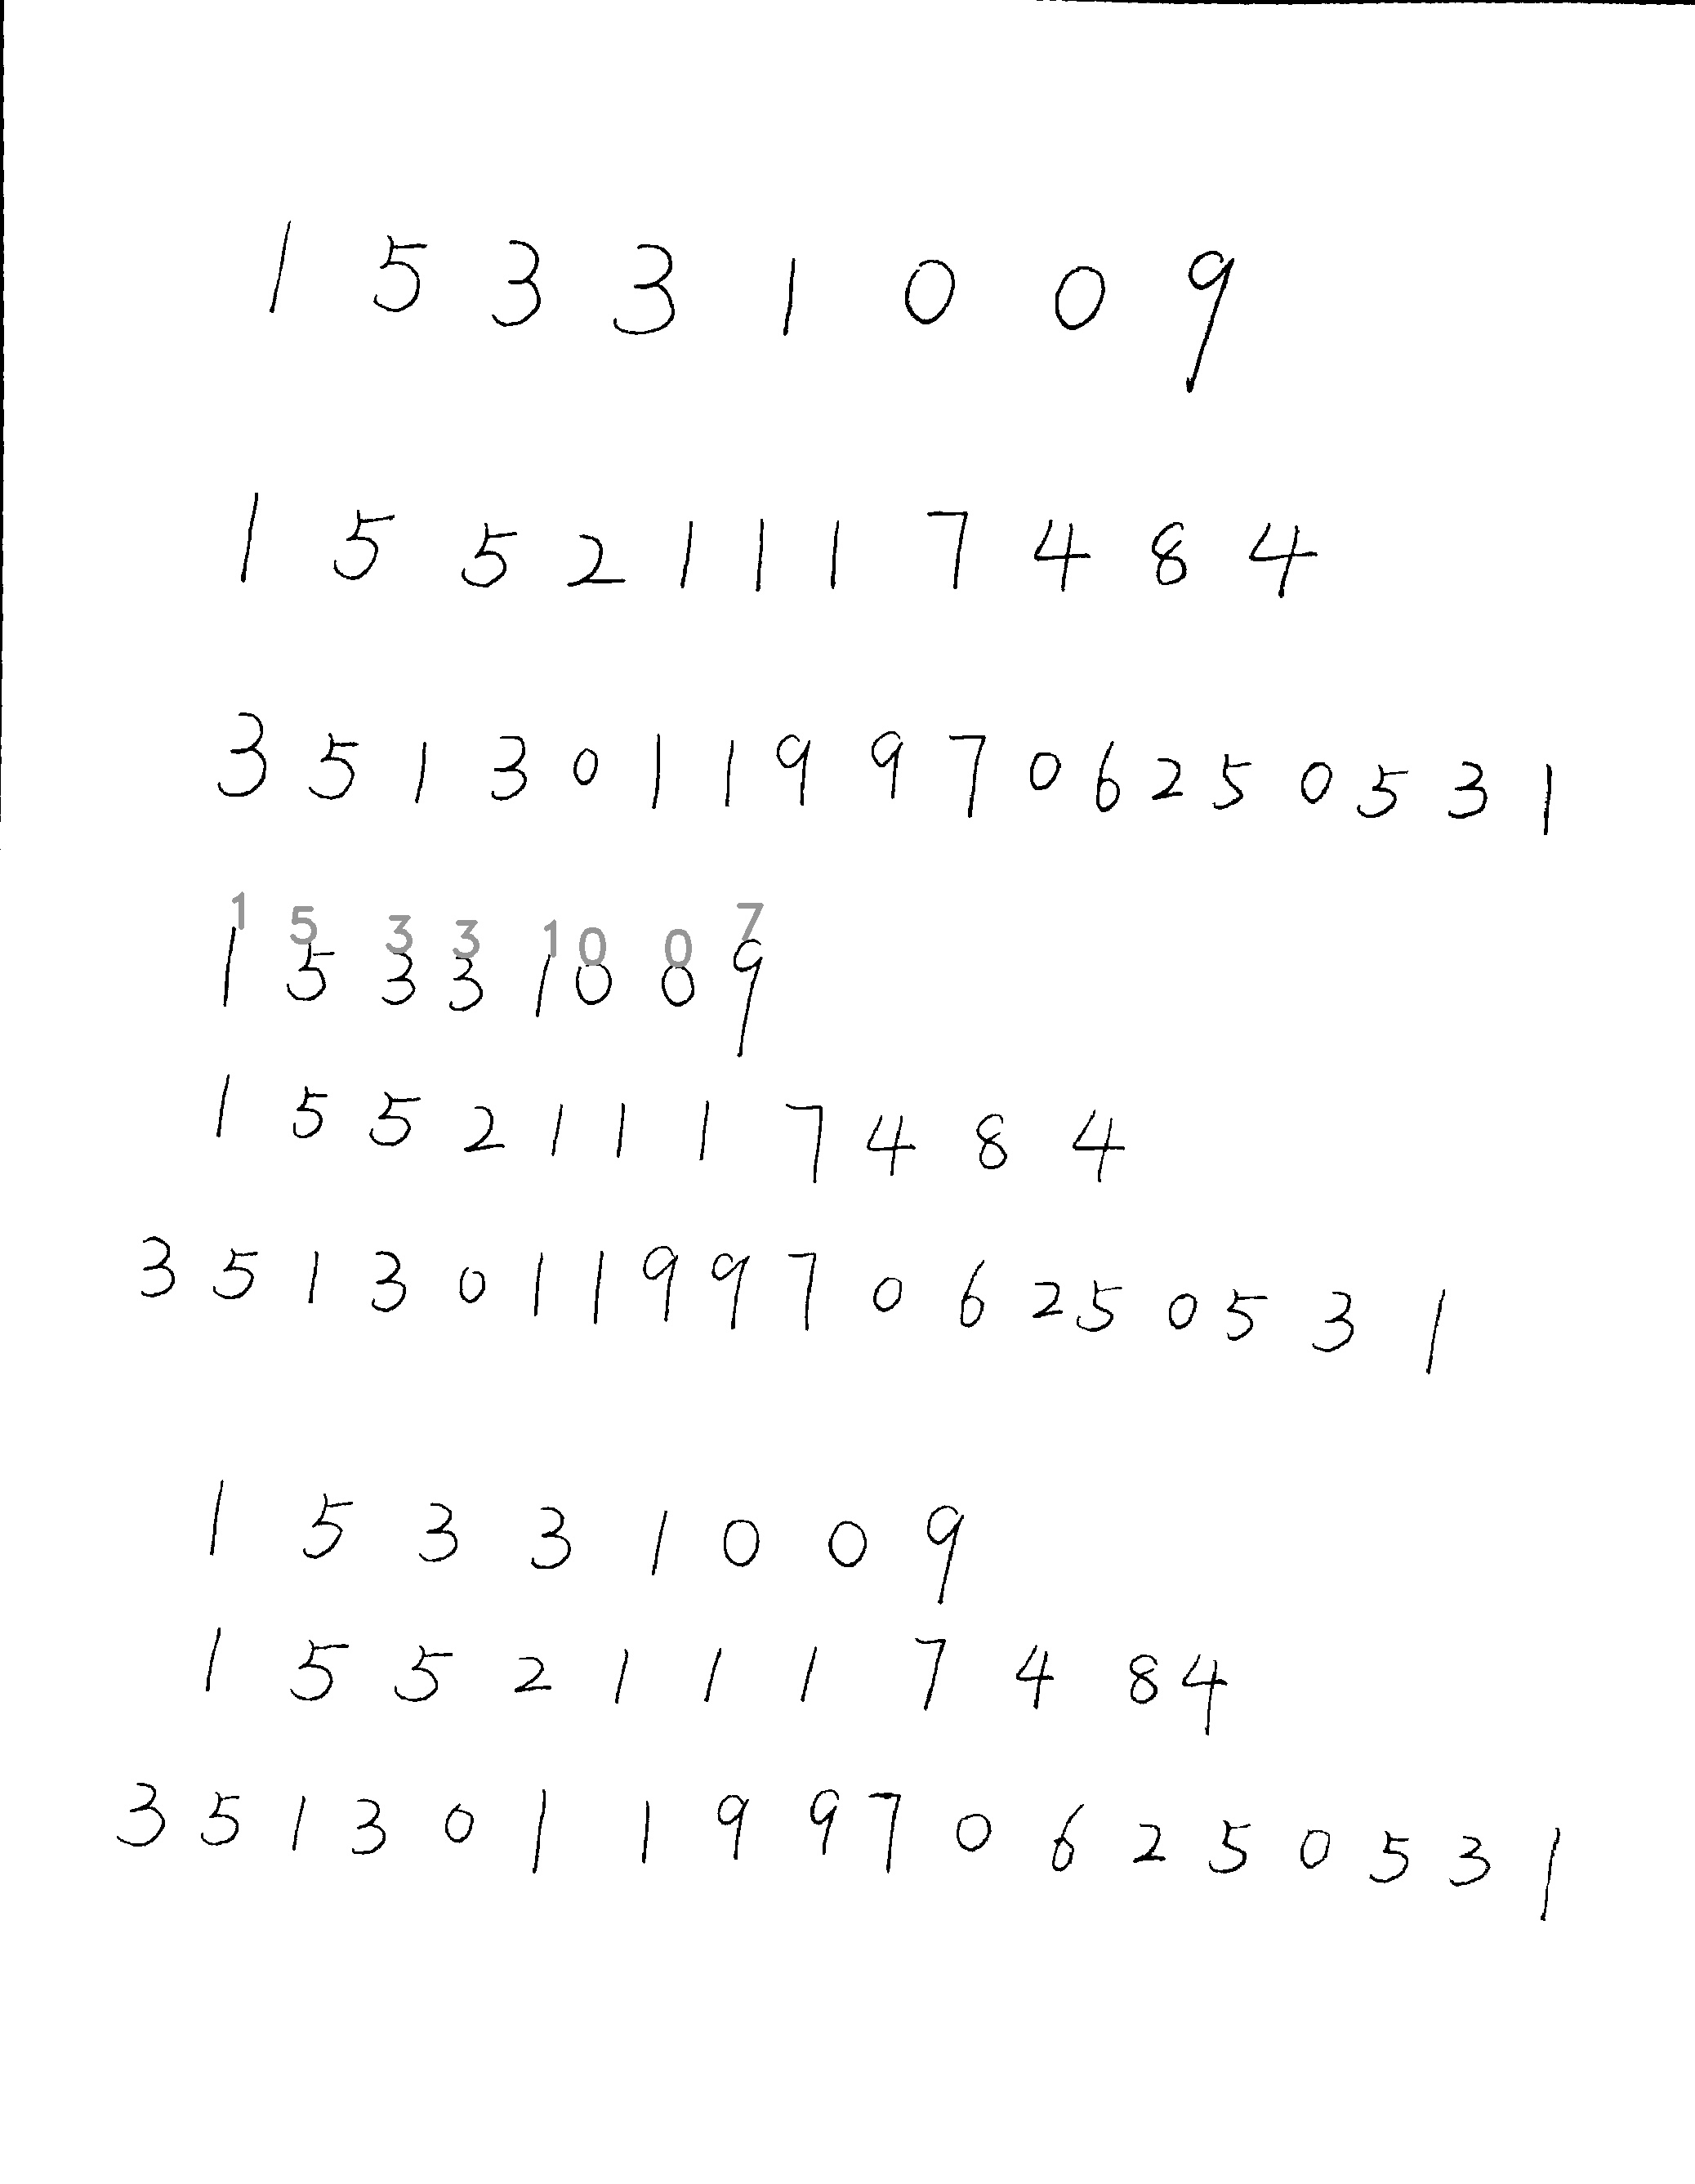 1 5 3 3 1 0 0 9
1 5 5 2 1 1 1 7 4 8 4
3 5 1 3 0 1 1 9 9 7 0 6 2 5 0 5 3 1
1 5 3 3 1 0 0 7
1 5 3 3 1 0 0 9
1 5 5 2 1 1 1 7 4 8 4
3 5 1 3 0 1 1 9 9 7 0 6 2 5 0 5 3 1
1 5 3 3 1 0 0 9
1 5 5 2 1 1 1 7 4 8 4
3 5 1 3 0 1 1 9 9 7 0 6 2 5 0 5 3 1